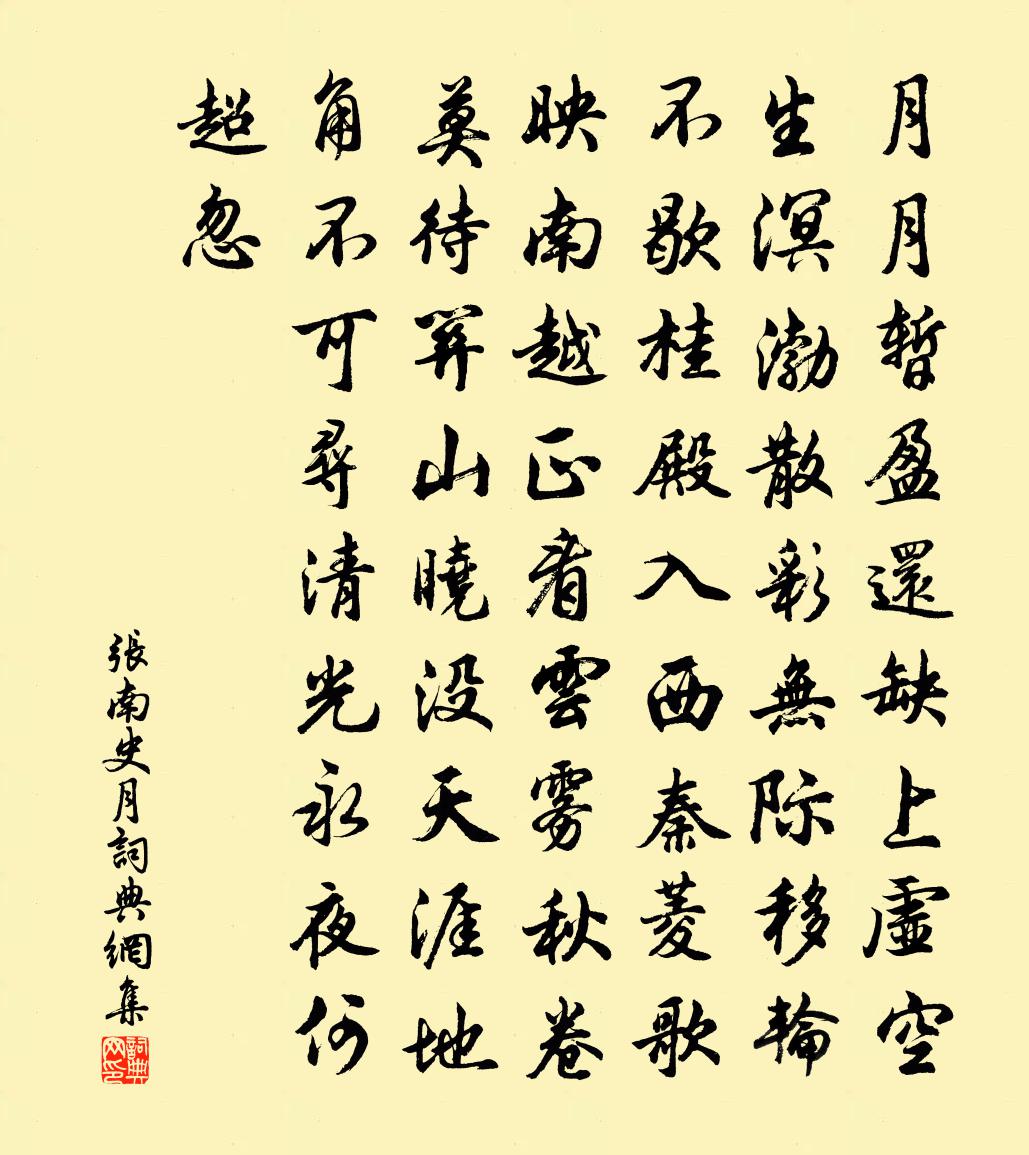 月月暫盈還缺上虛空
生溟渤散彩無際移輪
不歇桂殿入西秦菱歌
映南越正看雲雾秋卷
莫待關山曉没天涯地
角不可尋清光永夜何
超忽
張南史月詞典網集
詞典网印